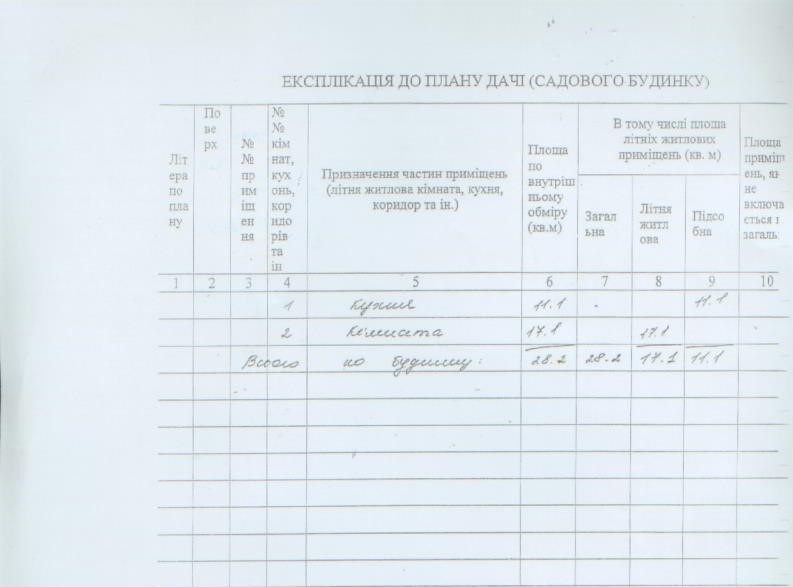 ЕКСПЛІКАЦІЯ ДО ПЛАНУ ДАЧІ (САДОВОГО БУДИНКУ)
Літ
ера
по
пла
ну
По
ве
рх
№
№
пр
им
іщ
ен
ня
№
№
кім
нат,
кух
онь,
кор
идо
рів
та
ін
Призначення частин приміщень
(літня житлова кімната, кухня,
коридор та ін.)
Площа
по
внутріш
ньому
обміру
(кв.м)
В тому числі площа
літніх житлових
приміщень (кв. м)
Загал
ьна
Літня
житл
ова
Підсо
бна
Площа
приміщ
ень, як
не
включа
ється і
загаль
1 2 3 4 5 6 7 8 9 10
1 Кухня 11.1 - 11.1
2 Кімната 17.1 17.1
Всього по будинку: 28.2 28.2 17.1 11.1